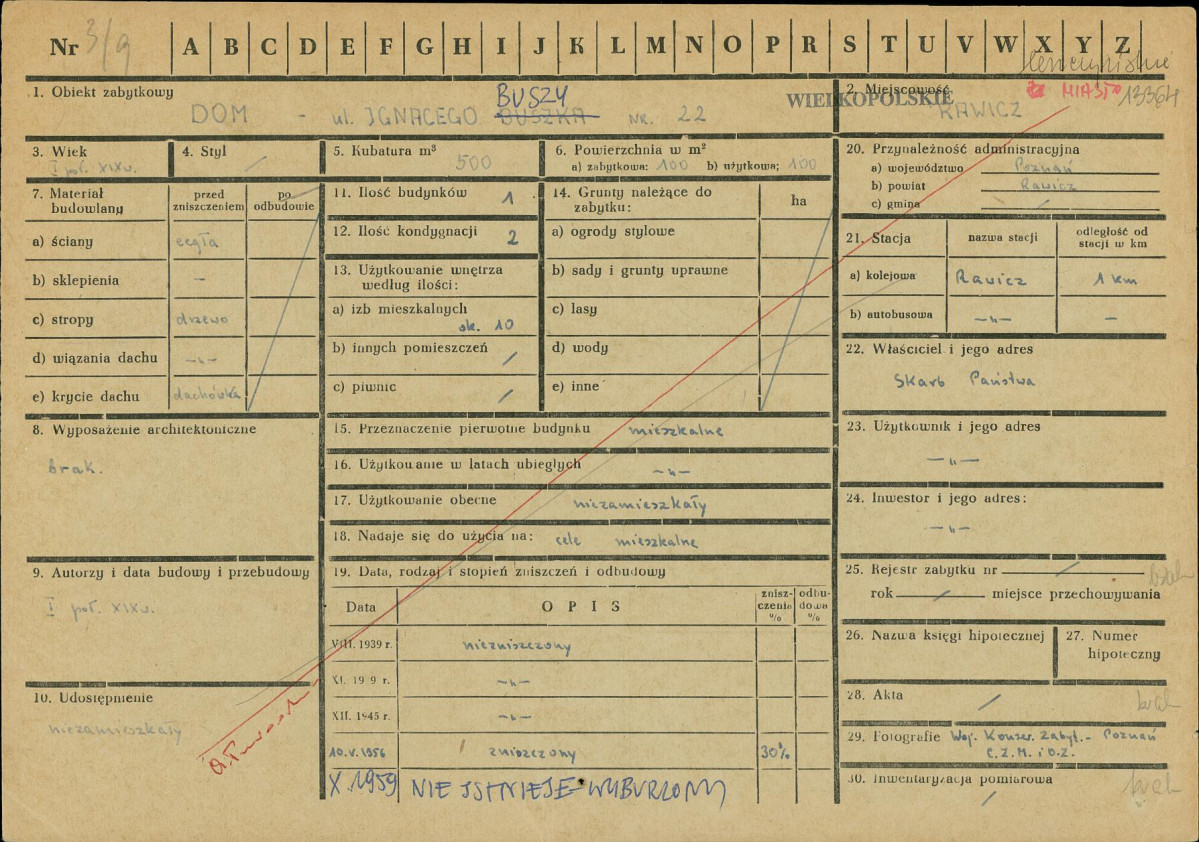 Nr 3/9 A B C D E F G H I J K L M N O P R S T U V W X Y Z
1. Obiekt zabytkowy
DOM - ul. IGNACEGO BUSZKA NR. 22
BUSZY
WIELKOPOLSKIE
2. Miejscowość
MIASTO 13364
RAWICZ
3. Wiek
I poł. XIXw.
4. Styl
/
5. Kubatura m³
500
6. Powierzchnia w m²
a) zabytkowa: 100 b) użytkowa: 100
20. Przynależność administracyjna
a) województwo Poznań
b) powiat Rawicz
c) gmina /
7. Materiał budowlany
przed zniszczeniem
po odbudowie
a) ściany cegła
b) sklepienia –
c) stropy drzewo
d) wiązania dachu –„–
e) krycie dachu dachówka
11. Ilość budynków 1
12. Ilość kondygnacji 2
13. Użytkowanie wnętrza
według ilości:
a) izb mieszkalnych
ok. 10
b) innych pomieszczeń /
c) piwnic /
14. Grunty należące do
zabytku:
ha
a) ogrody stylowe
b) sady i grunty uprawne
c) lasy
d) wody
e) inne
21. Stacja nazwa stacji odległość od
stacji w km
a) kolejowa Rawicz 1 km
b) autobusowa –„– –
22. Właściciel i jego adres
Skarb Państwa
23. Użytkownik i jego adres
–„–
24. Inwestor i jego adres:
–„–
8. Wyposażenie architektoniczne
brak.
15. Przeznaczenie pierwotne budynku mieszkalne
16. Użytkowanie w latach ubiegłych –„–
17. Użytkowanie obecne niezamieszkały
18. Nadaje się do użycia na: cele mieszkalne
9. Autorzy i data budowy i przebudowy
I poł. XIXw.
10. Udostępnienie
niezamieszkały
19. Data, rodzaj i stopień zniszczeń i odbudowy
Data OPIS znisz-
czenia
%
odbu-
dowa
%
VIII. 1939 r. niezniszczony
XI. 19 9 r. –„–
XII. 1945 r. –„–
10.V.1956 zniszczony 30%
X.1959 NIE ISTNIEJE - WYBURZONY
25. Rejestr zabytku nr / brak
rok / miejsce przechowywania
26. Nazwa księgi hipotecznej
27. Numer
hipoteczny
28. Akta / brak
29. Fotografie Woj. Konser. Zabyt. - Poznań
C.Z.M. i O.Z.
30. Inwentaryzacja pomiarowa
/ brak